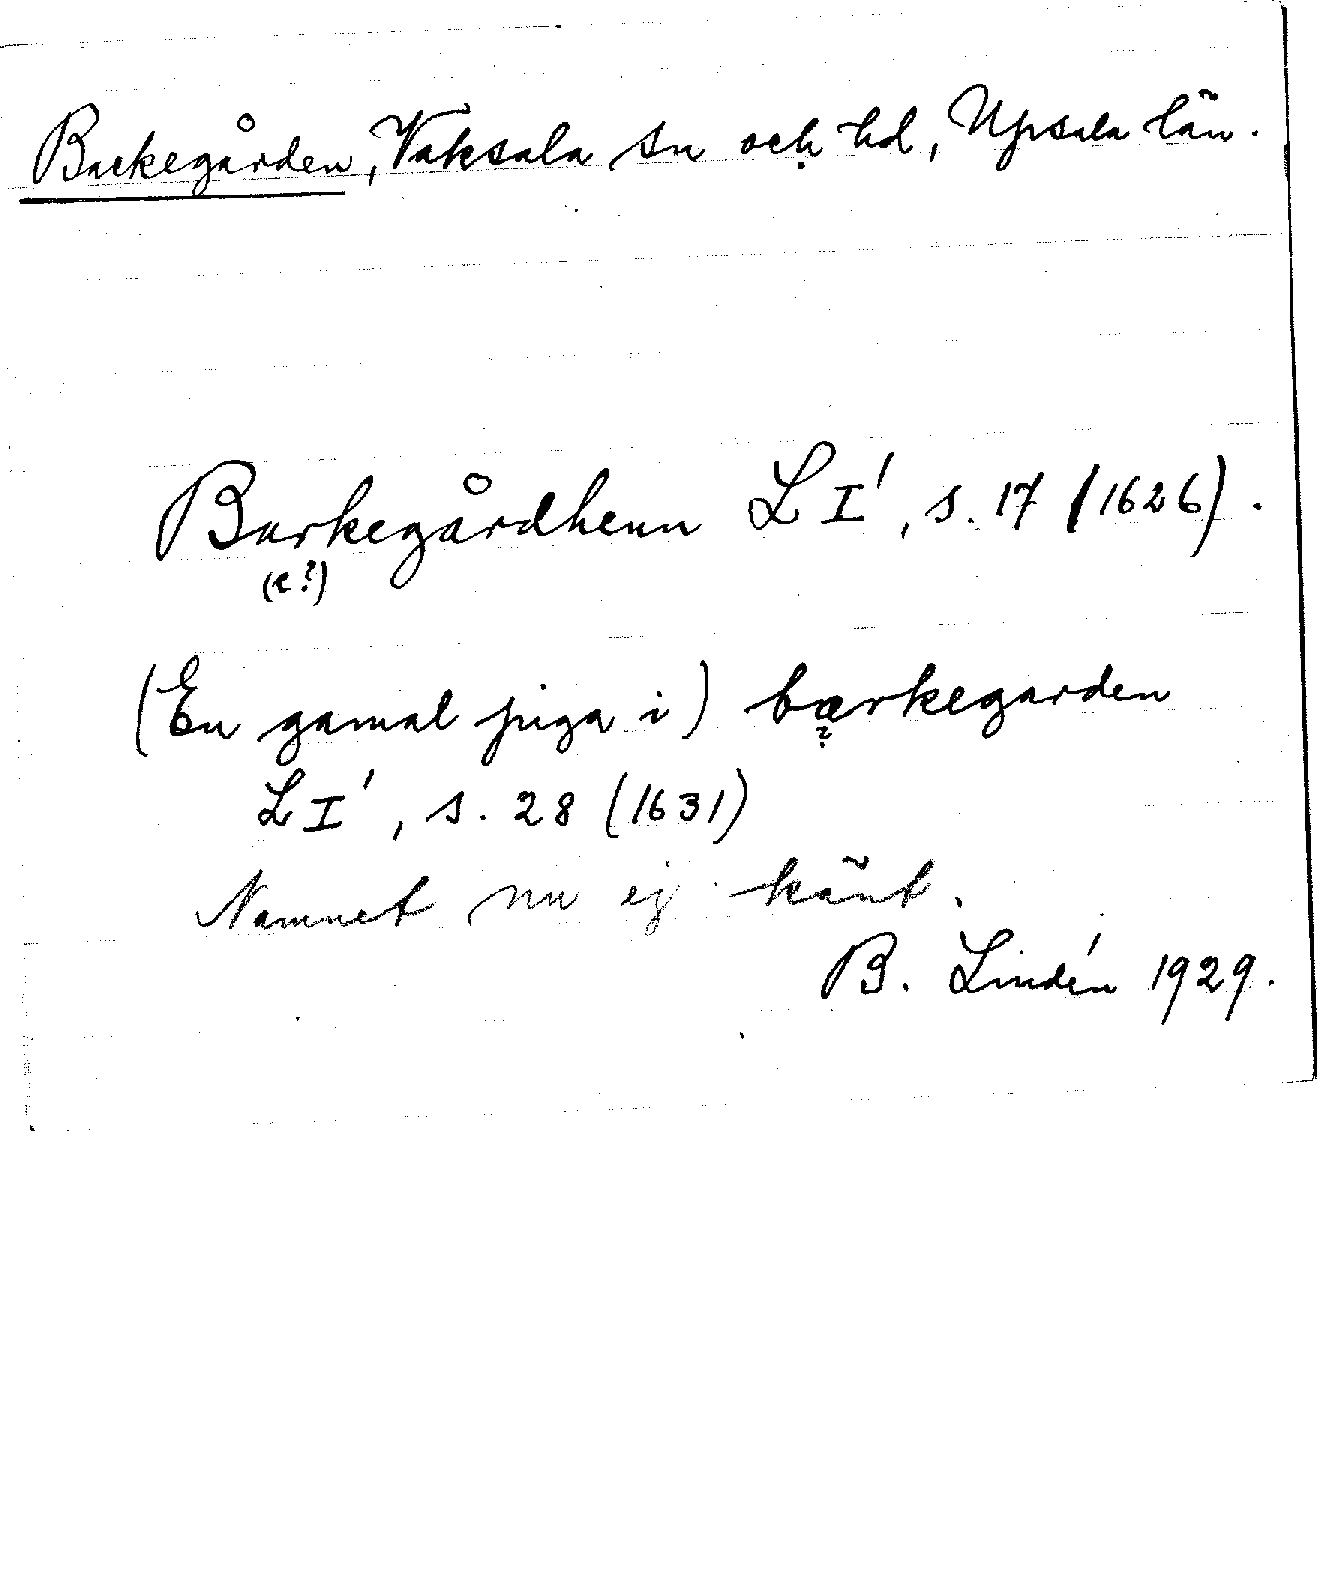 Backegården, Vaksala sn och hd, Upsala län.
Barkegårdhenn L I', s. 17 (1626).
(c?)
(En gamal piga i) bærkegarden
?
L I', s. 28 (1631)
Namnet nu ej känt.
B. Lindén 1929.